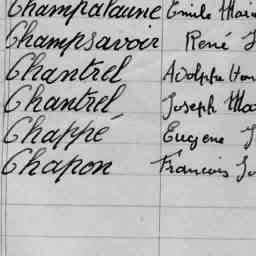 Champalaune Emile
Champsavoir René
Chantrel Adolphe
Chantrel Joseph
Chappé Eugene
Chapon Francois